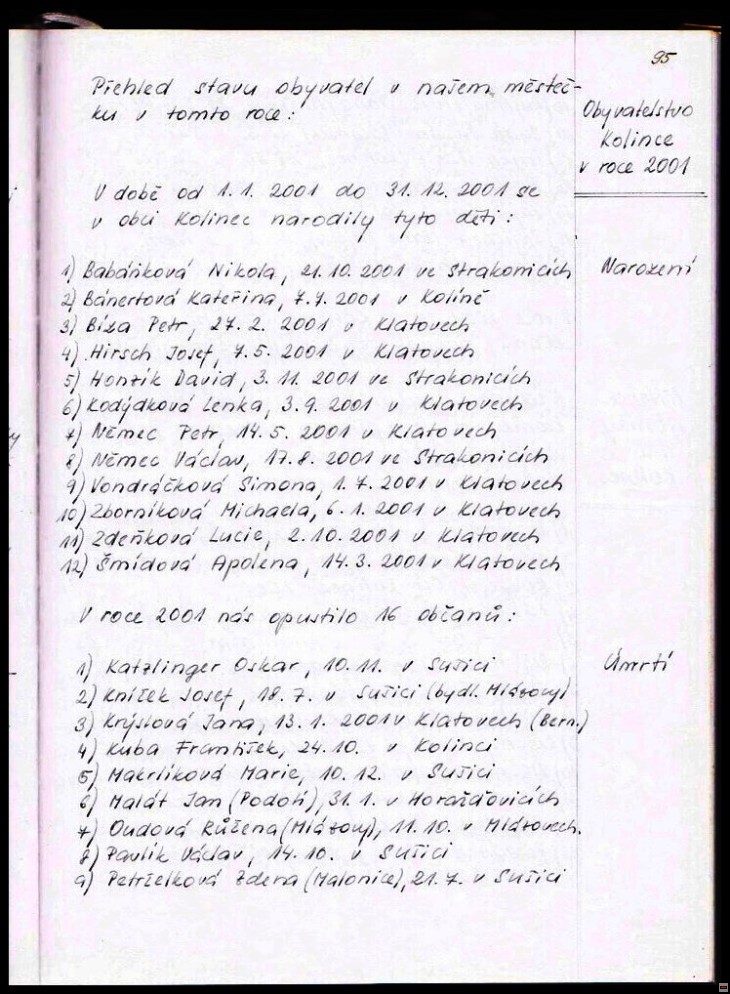 95
Přehled stavu obyvatel v našem městeč-
ku v tomto roce:
Obyvatelstvo
Kolince
v roce 2001
V době od 1.1. 2001 do 31.12. 2001 se
v obci Kolinec narodily tyto děti:
Narození
1) Babáňková Nikola, 21.10. 2001 ve Strakonicích
2) Bánertová Kateřina, 7.7. 2001 v Kolíně
3) Bíza Petr, 27. 2. 2001 v Klatovech
4) Hirsch Josef, 7.5. 2001 v Klatovech
5) Honzík David, 3.11. 2001 ve Strakonicích
6) Kodýdková Lenka, 3.9. 2001 v Klatovech
7) Němec Petr, 14.5. 2001 v Klatovech
8) Němec Václav, 17.8. 2001 ve Strakonicích
9) Vondráčková Simona, 1.7. 2001 v Klatovech
10) Zborníková Michaela, 6.1. 2001 v Klatovech
11) Zdeňková Lucie, 2.10. 2001 v Klatovech
12) Šmídová Apolena, 14.3. 2001 v Klatovech
V roce 2001 nás opustilo 16 občanů:
Úmrtí
1) Katzlinger Oskar, 10.11. v Sušici
2) Kníšek Josef, 18.7. v Sušici (bydl. Mlázovy)
3) Krýslová Jana, 13.1. 2001 v Klatovech (Bern.)
4) Kuba František, 24.10. v Kolinci
5) Makrlíková Marie, 10.12. v Sušici
6) Malát Jan (Podolí), 31.1. v Horažďovicích
7) Oudová Růžena (Mlázovy), 11.10. v Mlázovech.
8) Pavlík Václav, 14.10. v Sušici
9) Petrželková Zdena (Malonice), 21.7. v Sušici